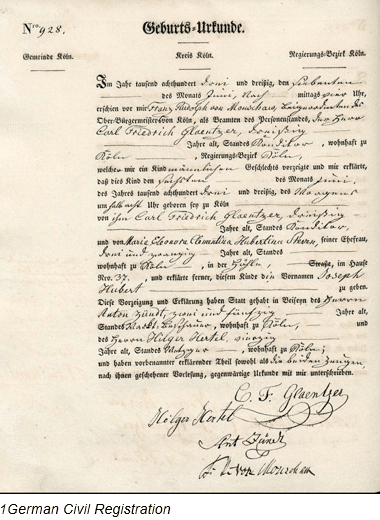 Nro. 928.
Geburts-Urkunde.
Gemeinde Köln.
Kreis Köln.
Regierungs-Bezirk Köln.
Im Jahr tausend achthundert drei und dreißig, den siebenten
des Monats Juni, Nach mittags vier Uhr,
erschien vor mir Franz Rudolph von Monschaw, Beigeordneten des
Ober-Bürgermeisters von Köln, als Beamten des Personenstandes, der Herr
Carl Friedrich Glaentzer, dreißig
Jahre alt, Standes Konditor, wohnhaft zu
Köln, Regierungs-Bezirk Köln,
welcher mir ein Kind männlichen Geschlechts vorzeigte und mir erklärte,
daß dies Kind den sechsten des Monats Juni,
des Jahres tausend achthundert drei und dreißig, des Morgens
um halb acht Uhr geboren sey zu Köln
von ihm Carl Friedrich Glaentzer, dreißig
Jahre alt, Standes Konditor,
und von Maria Eleonora Clementina Hubertina seiner Ehefrau,
drei und zwanzig Jahre alt, Standes
wohnhaft zu Köln, in der Straße, im Hause
Nro. 37. und erklärte ferner, diesem Kinde die Vornamen Joseph
Hubert zu geben.
Diese Vorzeigung und Erklärung haben Statt gehabt in Beiseyn des Herrn
Anton Zündt, zwei und fünfzig Jahre alt,
Standes wohnhaft zu Köln, und
des Herrn Hilger Hertel, vierzig
Jahre alt, Standes Metzger, wohnhaft zu Köln;
und haben vorbenannter erklärender Theil sowohl als die beiden Zeugen
nach ihnen geschehener Vorlesung, gegenwärtige Urkunde mit mir unterschrieben.
C. F. Glaentzer
Hilger Hertel
Ant Zündt
von Monschaw
1German Civil Registration